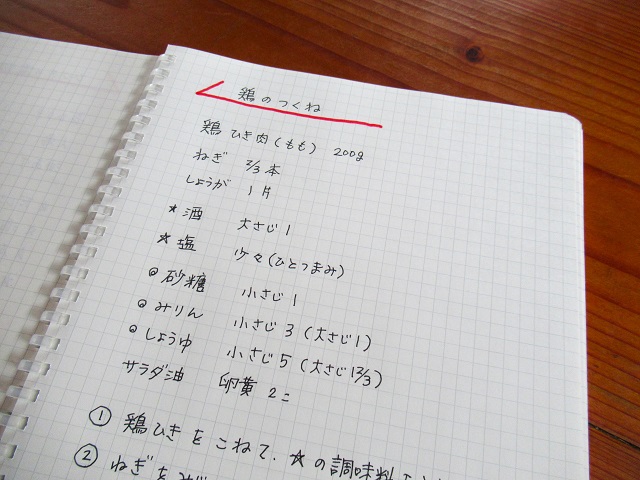 鶏のつくね
鶏 ひき肉(もも) 200g
ねぎ 2/3本
しょうが 1片
★酒 大さじ1
★塩 少々(ひとつまみ)
◎砂糖 小さじ1
◎みりん 小さじ3(大さじ1)
◎しょうゆ 小さじ5(大さじ1 2/3)
サラダ油 卵黄 2コ
① 鶏ひきをこねて、☆の調味料を
② ねぎを